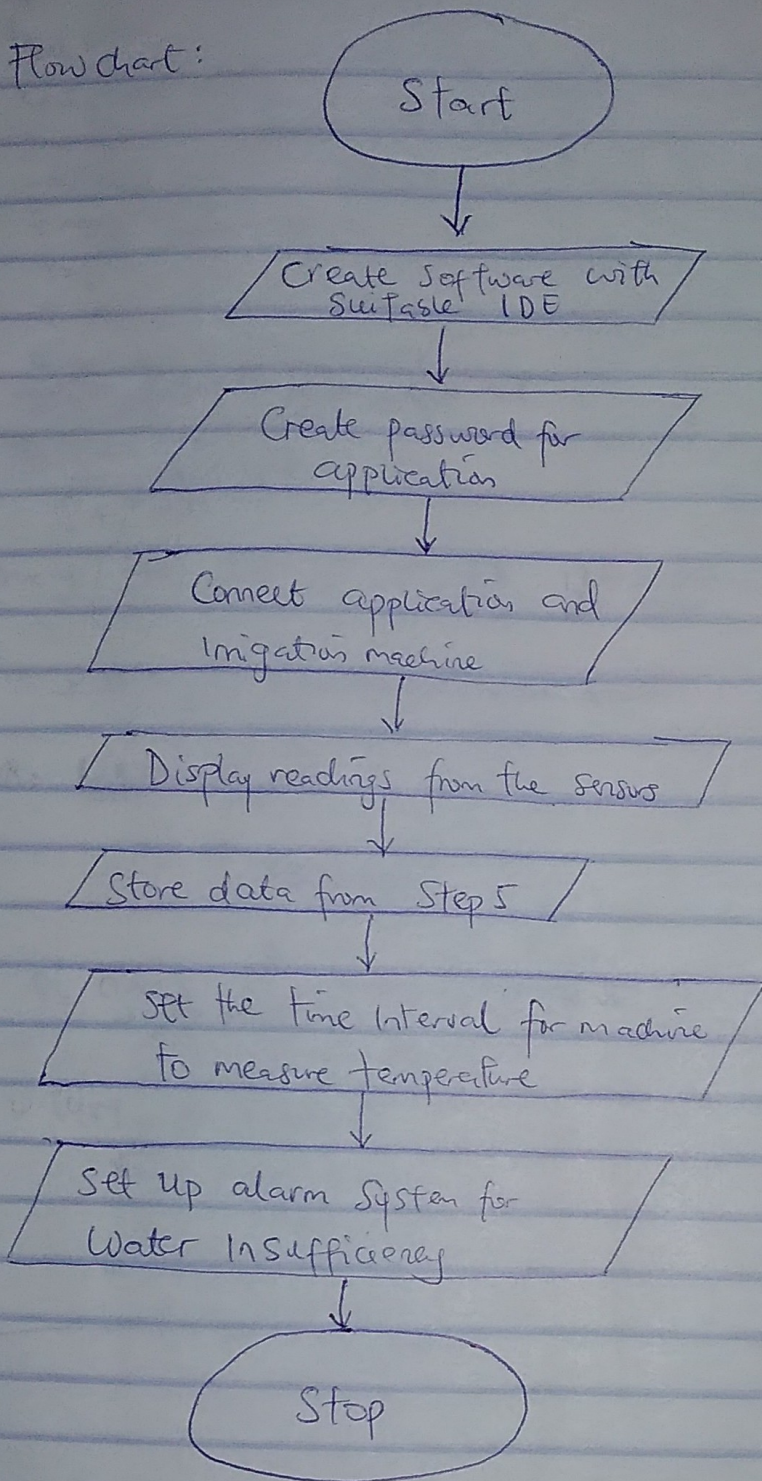 Flow chart:
Start
Create software with
Suitable IDE
Create password for
application
Connect application and
Irrigation machine
Display readings from the sensors
Store data from Step 5
Set the time interval for machine
to measure temperature
Set up alarm system for
Water Insufficiency
Stop